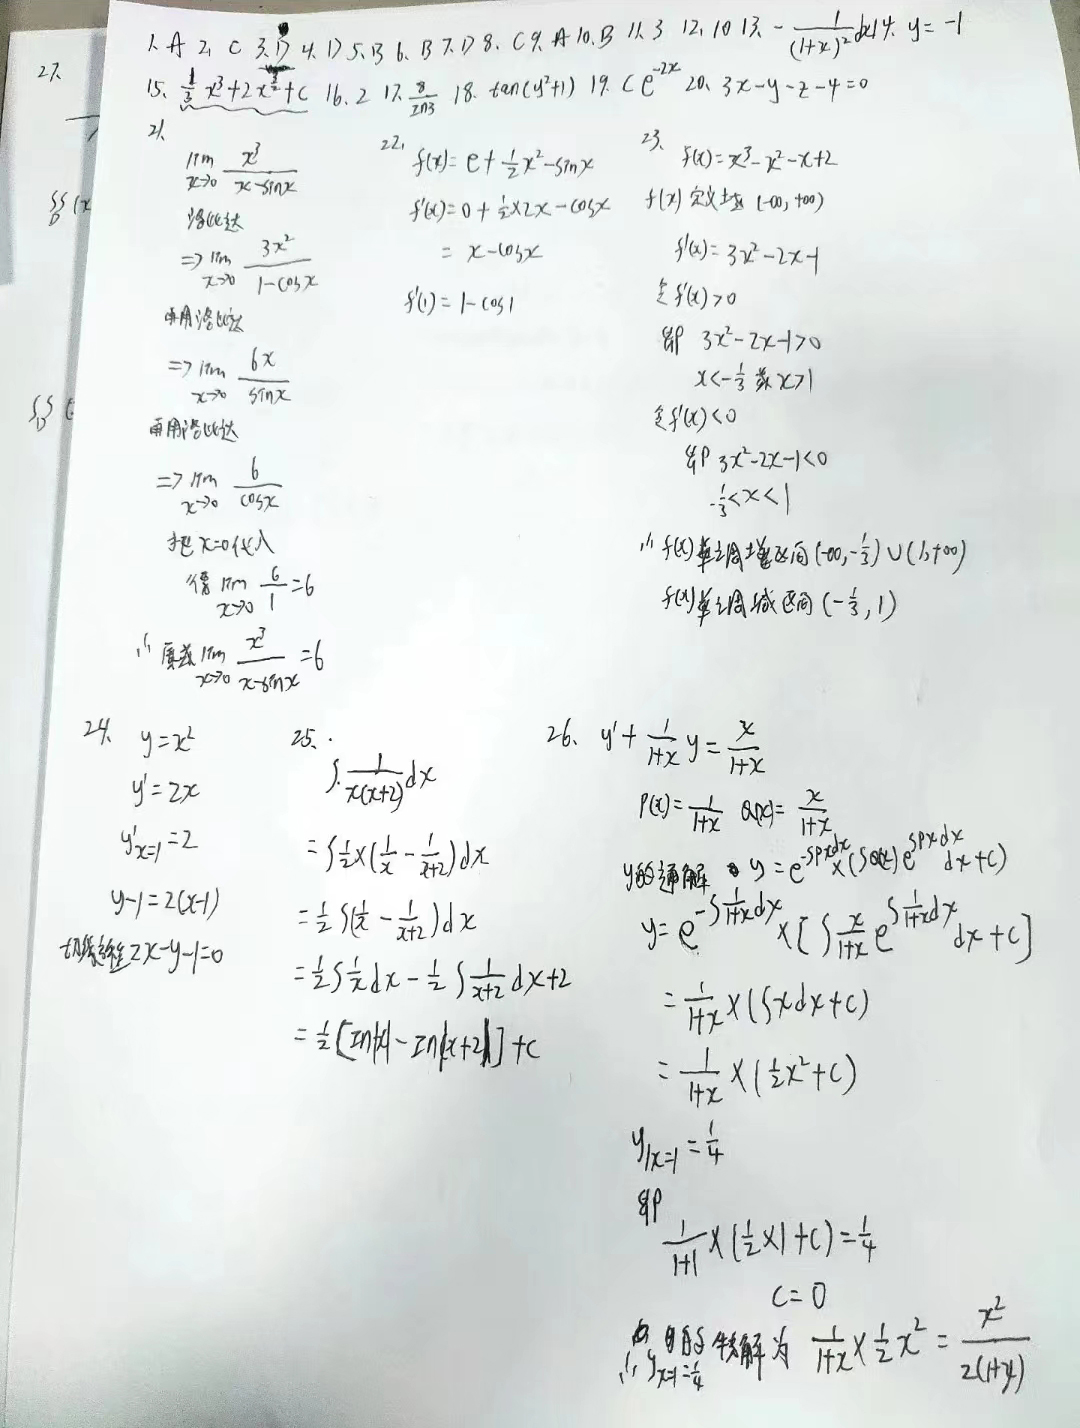 1. A 2. C 3. D 4. D 5. B 6. B 7. D 8. C 9. A 10. B 11. 3 12. 10 13. -1/(1+x)² dx 14. y=-1
15. 1/3 x³+2x^(3/2)+C 16. 2 17. 8/ln3 18. tan(y²+1) 19. Ce^(-2x) 20. 3x-y-z-4=0
21.
lim x→0 x³/(x-sinx)
洛必达
=> lim x→0 3x²/(1-cosx)
再用洛必达
=> lim x→0 6x/sinx
再用洛必达
=> lim x→0 6/cosx
把x=0代入
得 lim x→0 6/1=6
∴ 原式 lim x→0 x³/(x-sinx) =6
22. f(x)=e+1/2x²-sinx
f'(x)=0+1/2×2x-cosx
= x-cosx
f'(1)=1-cos1
23. f(x)=x³-x²-x+2
f(x)定义域(-∞,+∞)
f'(x)=3x²-2x-1
令f'(x)>0
即 3x²-2x-1>0
x<-1/3 或 x>1
令f'(x)<0
即 3x²-2x-1<0
-1/3<x<1
∴ f(x)单调增区间(-∞,-1/3)∪(1,+∞)
f(x)单调减区间(-1/3,1)
24. y=x²
y'=2x
y'x=1=2
y-1=2(x-1)
切线方程2x-y-1=0
25.
∫1/(x(x+2)) dx
=∫1/2×(1/x-1/(x+2))dx
=1/2∫(1/x-1/(x+2))dx
=1/2∫1/x dx-1/2∫1/(x+2) dx+2
=1/2[ln|x|-ln|x+2|]+C
26. y'+1/(1+x) y=x/(1+x)
P(x)=1/(1+x) Q(x)=x/(1+x)
y的通解 y=e^(-∫Pxdx)×(∫Q(x)e^(∫Pxdx)dx+C)
y=e^(-∫1/(1+x)dx)×[∫x/(1+x) e^(∫1/(1+x)dx)dx+C]
=1/(1+x)×(∫xdx+C)
=1/(1+x)×(1/2x²+C)
y|x=1=1/4
即
1/(1+1)×(1/2×1+C)=1/4
C=0
∴ yx=1=1/4 的特解为 1/(1+x)×1/2x²=x²/(2(1+x))
27.
∫∫D (x
∫∫D (